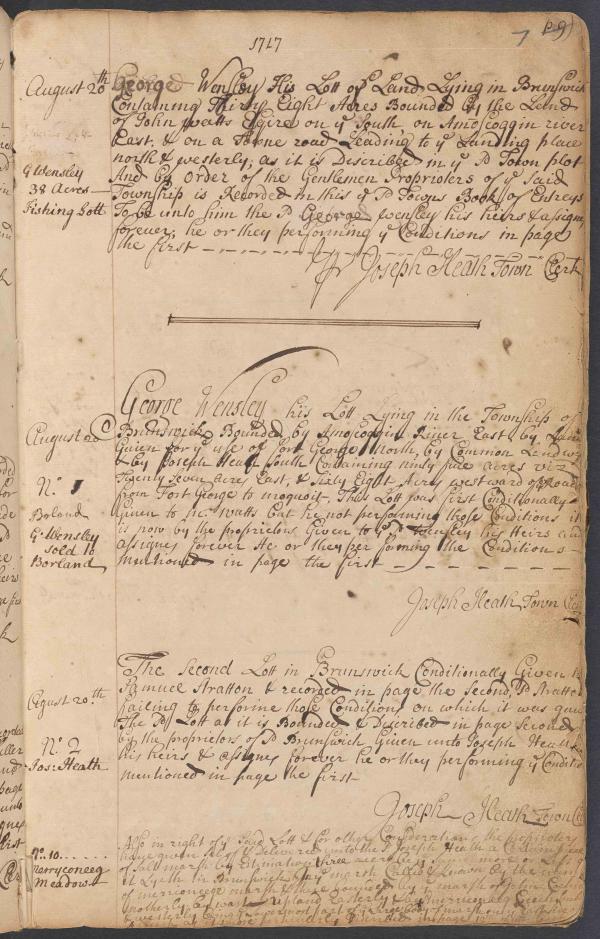 1717
7 P 9
August 20th George Wensley His Lott of Land Lying in Brunswick
Containing Thirty Eight Acres Bounded by the Land
of John Watts Esqire on ye South, on Amoscoggin river
East, & on a Towne road Leading to ye Landing place
north & westerly, as it is Described in ye sd Town plot
G Wensley
And by Order of the Gentlemen Proprioters of ye Said
38 Acres
Township is Recorded in this ye sd Towns Book of Entreys
Fishing Lott
To be unto him the sd George Wensley his heirs & assigns
forever, he or they performing ye Conditions in page
the first
Joseph Heath Town Clerk
George Wensley his Lott Lying in the Township of
August 20
Brunswick Bounded by Amoscoggin River East, by Land
Given for ye use of Fort George North, by Common Land
& by Joseph Heath South Containing ninty five acres viz
No. 1
Twenty Seven Acres East, & Sixty Eight Acres westward of Road
from Fort George to moquoit. This Lott was first Conditionally
Borland
Given to Mr. Watts but he not performing those Conditions it
G. Wensley
is now by the proprietors Given to sd Wensley his Heirs and
sold to
Assignes forever he or they performing the Conditions
Borland
mentioned in page the first
Joseph Heath Town
The Second Lott in Brunswick Conditionally Given
Samuel Stratton & recorded in page the Second, sd Stratton
August 20.th
failing to performe those Conditions on which it was
The sd Lott as it is Bounded & Described in page Second
No. 2
by the proprietors of sd Brunswick Given unto Joseph Heath
Jos: Heath
his heirs & assignes forever he or they performing ye Conditions
mentioned in page the first
Joseph Heath Town
Also in right of ye Said Lott & for other Considerations the proprietors
No. 10
have given unto the sd Joseph Heath a
merryconeeg
of Salt marsh by Estimation three acres be it more or Less
meadow
it Lyeth in Brunswick
of merriconeeg marsh